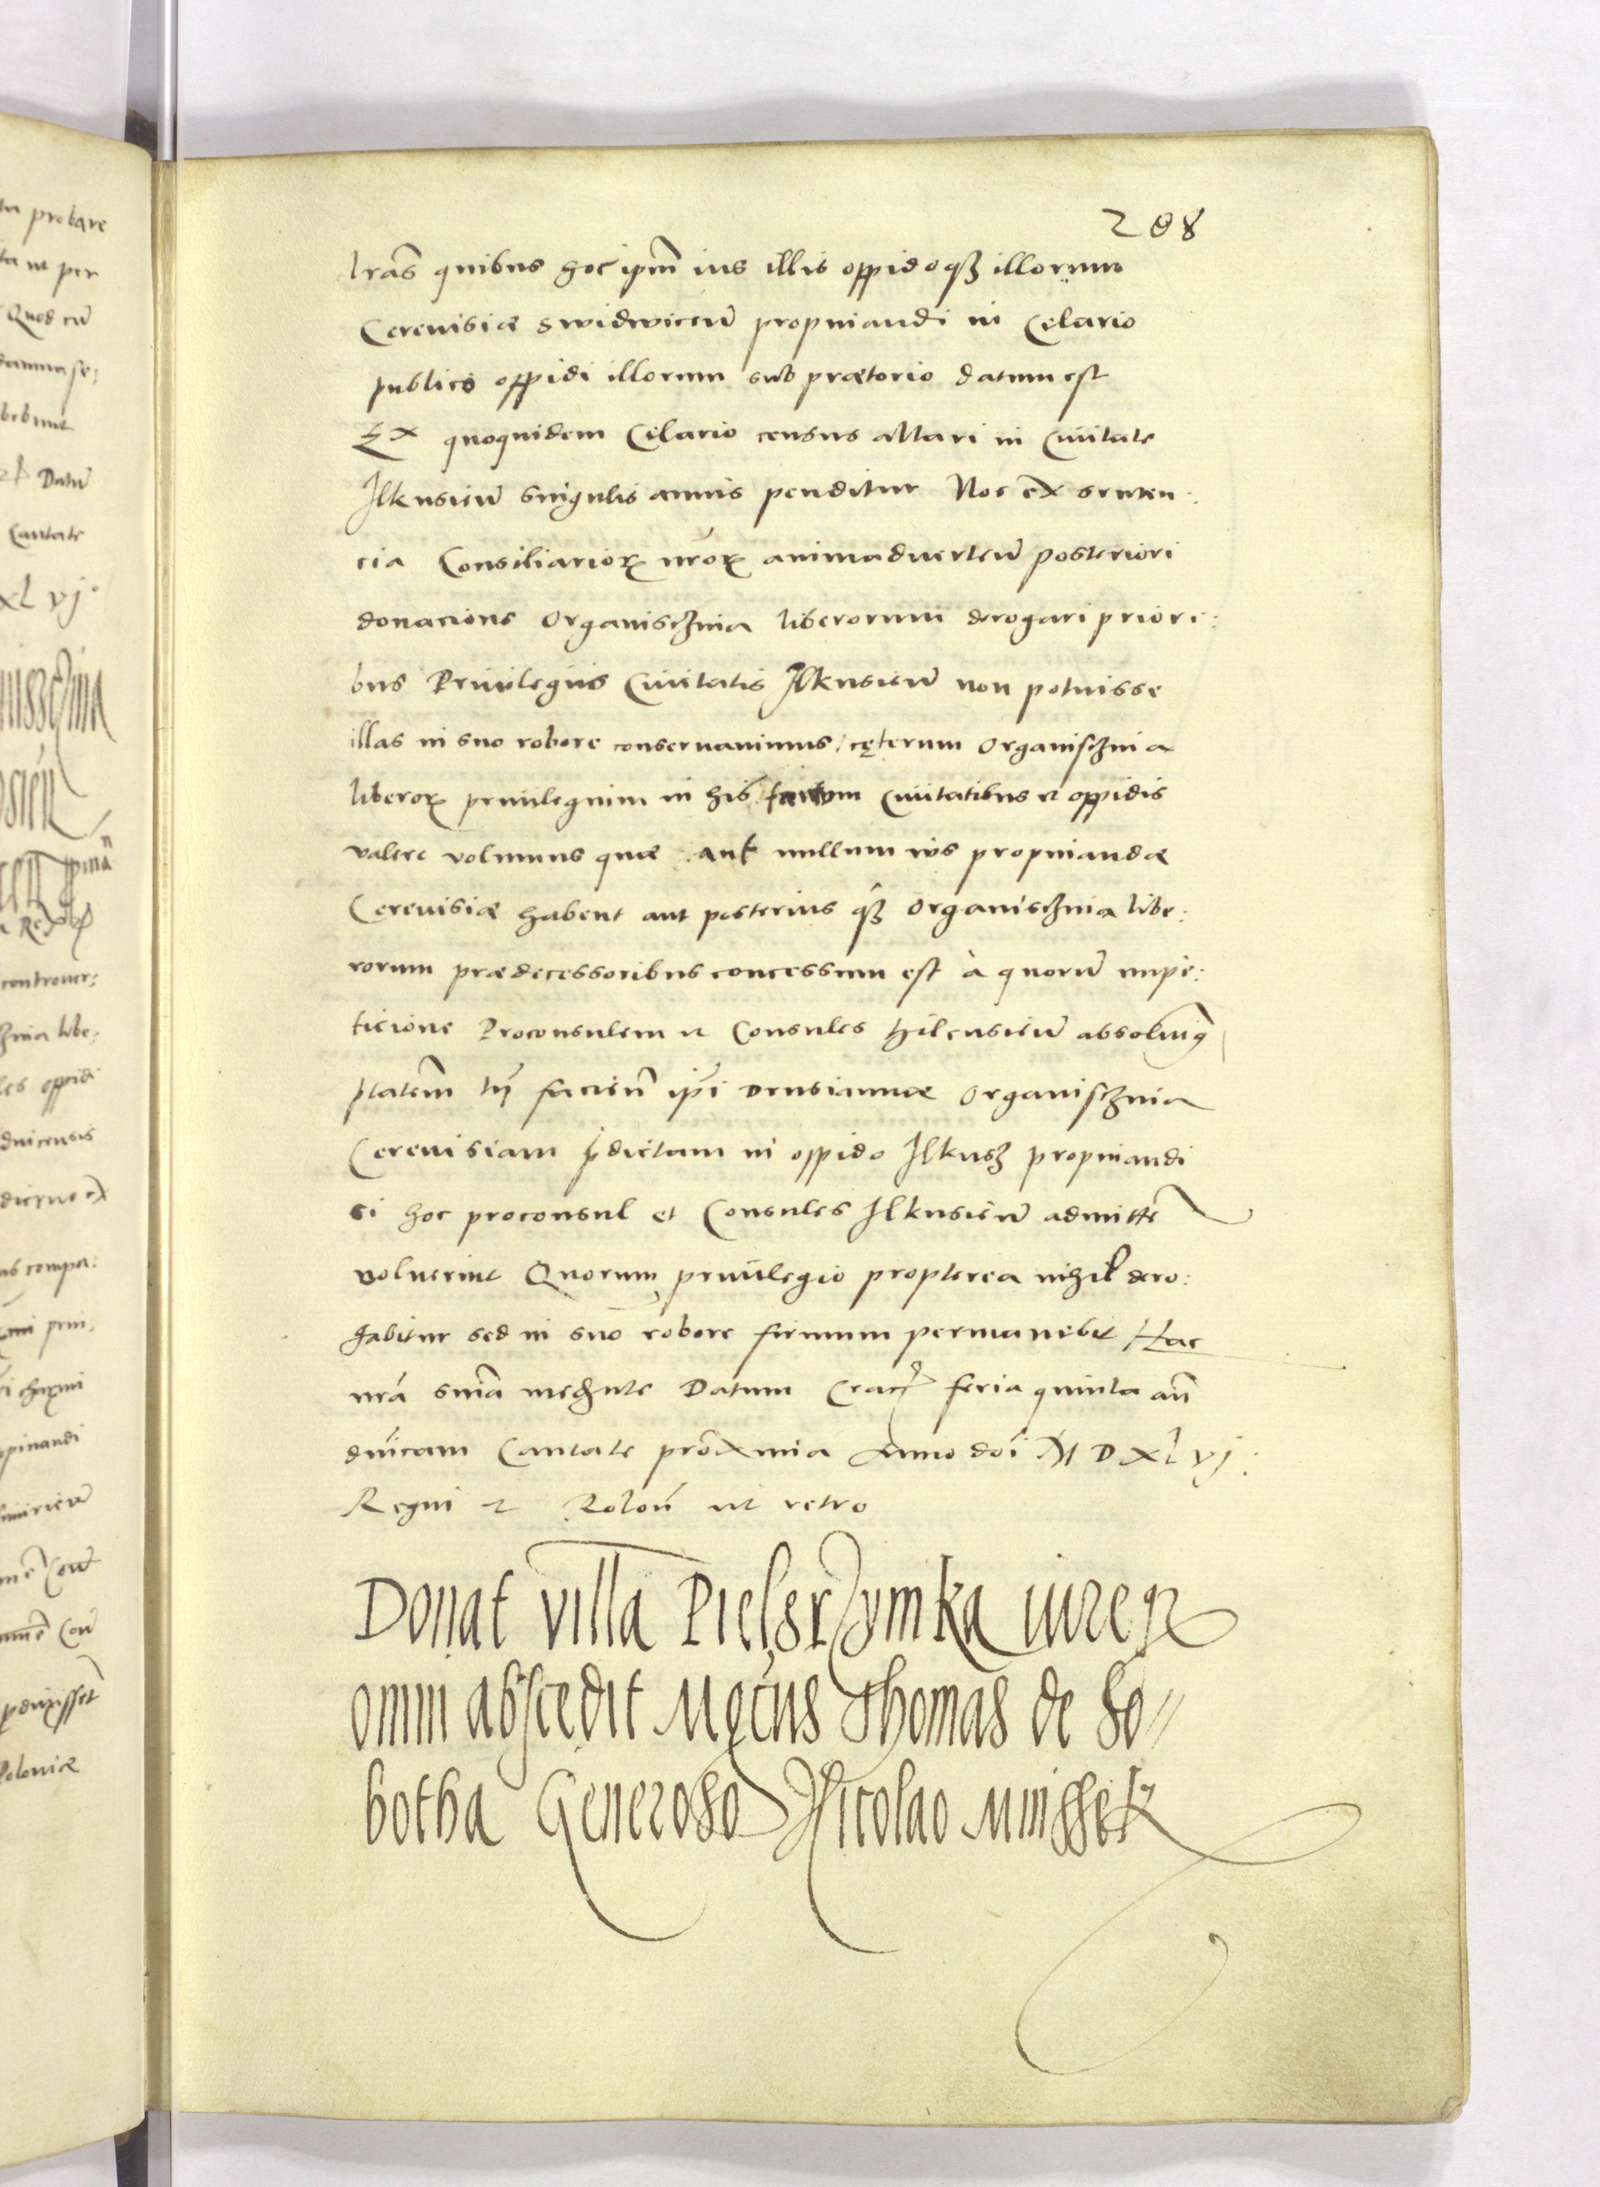 208
lras quibus hoc ipm ius illis oppidoqz illorum
Cerevisiæ swidwiceñ propinandi in Celario
publico oppidi illorum sub prætorio datum est
Ex quoquidem Celario census altari in Civitate
Ilkusieñ singulis annis penditur Nos ex senten:
cia Consiliarioꝝ nroꝝ animadverteñ posteriori
donacione Organisczinia liberorum derogari priori:
bus Privilegiis Civitatis Ilkusieñ non potuisse
illas in suo robore conservavimus, cęterum Organisczinia
liberoꝝ privilegium in his tantum Civitatibus et oppidis
valere volumus quæ aut nullum ius propinandæ
Cerevisiæ habent aut posterius qz Organisczinia libe:
rorum prædecessoribus concessum est à quorum impe:
ticione Proconsulem et Consules Hilcusieñ absolvimꝰ
ptatem tñ facieñ ipi Drusiannæ Organisczinia
Cerevisiam pdictam in oppido Ilkusz propinandi
si hoc proconsul et Consules Ilkusieñ admitte
voluerint Quorum privilegio propterea nihil dero:
gabitur sed in suo robore firmum permanebit Hac
nrã snia medñte Datum Crac feria quinta añ
dnicam Cantate proxima Anno doi MDXLvj:
Regni et Poloñ ut retro
Donat villa Pielgrzymka iureqꝫ
omni abscedit Mgcus Thomas de So//
botha Generoso Nicolao Mnisshek
probare
ut per
Quod cũ
Datũ
Cantate
XLvj.
controver:
libe:
oppidi
compa:
privi.
Poloniæ